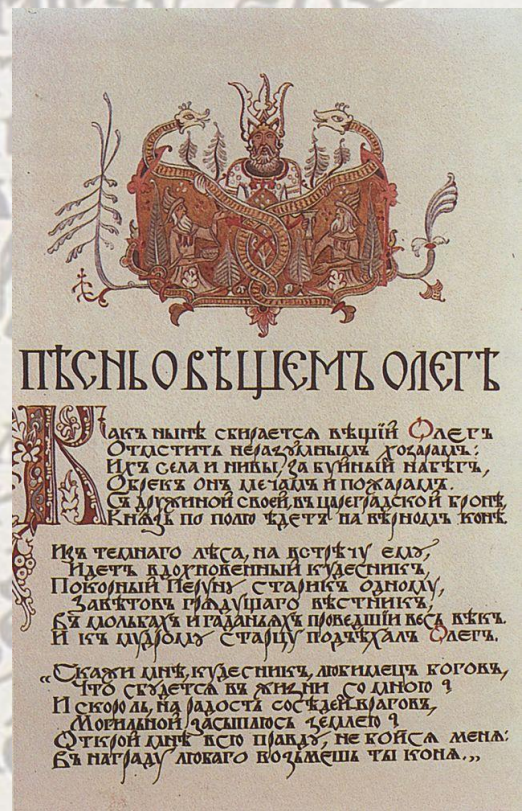 ПѢСНЬ О ВѢЩЕМЪ ОЛЕГѢ
Какъ нынѣ сбирается вѣщій Олегъ
Отмстить неразумнымъ хозарамъ:
Ихъ села и нивы, за буйный набѣгъ,
Обрекъ онъ мечамъ и пожарамъ.
Съ дружиной своей, въ цареградской бронѣ,
Князь по полю ѣдетъ на вѣрномъ конѣ.
Изъ темнаго лѣса, на встрѣчу ему,
Идетъ вдохновенный кудесникъ,
Покорный Перуну старикъ одному,
Завѣтовъ грядущаго вѣстникъ,
Въ мольбахъ и гаданьяхъ проведшій весь вѣкъ.
И къ мудрому старцу подъѣхалъ Олегъ.
„Скажи мнѣ, кудесникъ, любимецъ боговъ,
Что сбудется въ жизни со мною?
И скоро ль, на радость сосѣдей-враговъ,
Могильной засыплюсь землею?
Открой мнѣ всю правду, не бойся меня:
Въ награду любаго возьмешь ты коня.„